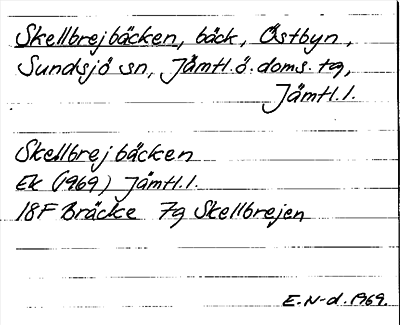 Skellbrejbäcken, bäck, Östbyn,
Sundsjö sn, Jämtl.ö.doms.tg,
Jämtl.l.
Skellbrejbäcken
Ek (1969) Jämtl.l.
18F Bräcke 7g Skellbrejen
E.N-d.1969.